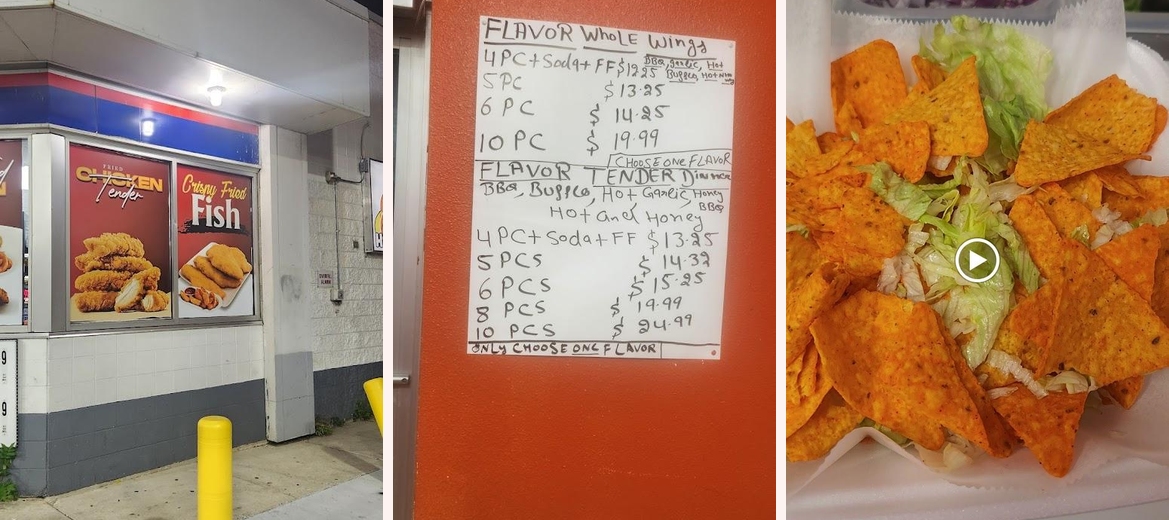 FRIED
CHICKEN
Tender
Crispy Fried
Fish
9
9
FLAVOR WHOLE Wings
4PC+Soda+FF $12.25 BBQ, garlic, Hot
Buffelo, Hot
5PC $13.25
6 PC $ 14.25
10 PC $ 19.99
CHOOSE ONE FLAVOR
FLAVOR TENDER Dinner
BBQ, Buffelo, Hot Garlic, Honey
BBQ
Hot and Honey
4 PC+ Soda+FF $13.25
5 PCS $ 14.32
6 PCS $ 15.25
8 PCS $ 19.99
10 PCS $ 24.99
ONLY CHOOSE ONE FLAVOR